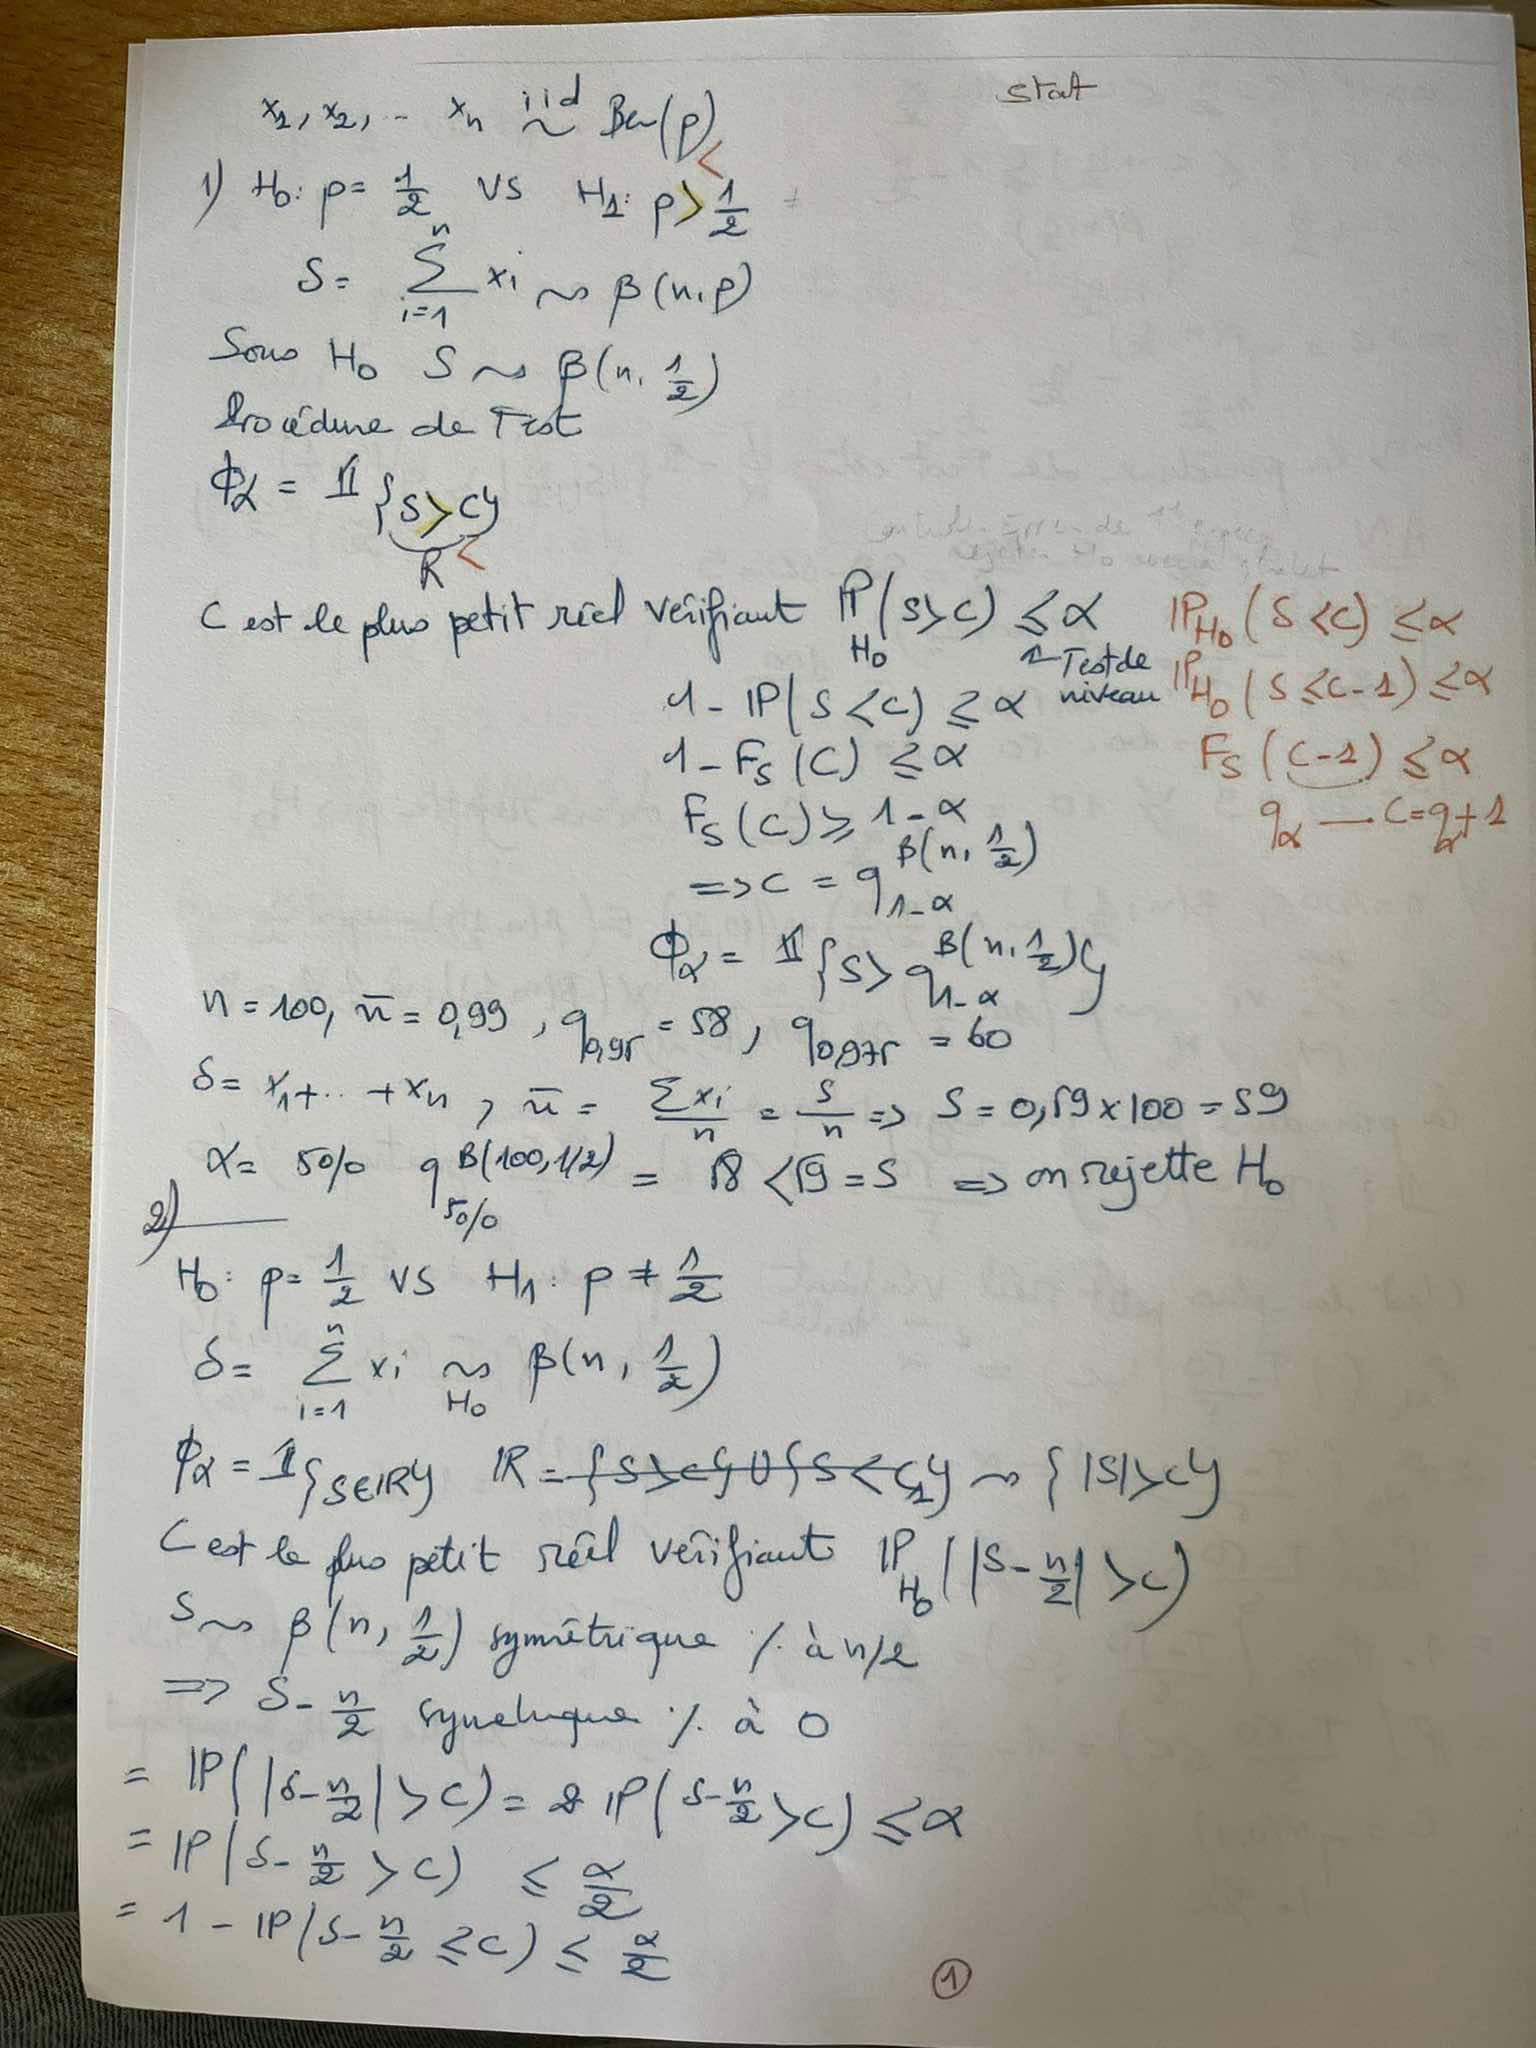 stat
x₁, x₂, .. xₙ iid ~ Ber(p)
<
1) H₀: p = 1/2 vs H₁: p > 1/2
S = Σ_{i=1}^{n} xᵢ ~> β(n, p)
Sous H₀ S ~> β(n, 1/2)
Procédure de Test
ϕ_α = 𝟙{S > C}
R <
C est le plus petit réel vérifiant ℙ_{H₀}(S > C) ≤ α
Test de niveau
1 - ℙ(S ≤ C) ≤ α
1 - F_S(C) ≤ α
F_S(C) ≥ 1 - α
=> C = q_{1-α}^{β(n, 1/2)}
ϕ_α = 𝟙{S > q_{1-α}^{β(n, 1/2)}}
ℙ_{H₀}(S < C) ≤ α
ℙ_{H₀}(S ≤ C - 1) ≤ α
F_S(C - 1) ≤ α
q_α — C = q_α + 1
n = 100, x̄ = 0,99, q_{0,95} = 58, q_{0,975} = 60
S = x₁ + .. + xₙ, x̄ = Σxᵢ/n = S/n => S = 0,59 x 100 = 59
α = 5% q_{5%}^{B(100, 1/2)} = 58 < 59 = S => on rejette H₀
2)
H₀: p = 1/2 vs H₁: p ≠ 1/2
S = Σ_{i=1}^{n} xᵢ ~>_{H₀} β(n, 1/2)
ϕ_α = 𝟙{S∈ℝ} ℝ = {S > C} U {S < C₁} ~> {|S| > C}
C est le plus petit réel vérifiant ℙ_{H₀}(|S - n/2| > C)
S ~> β(n, 1/2) symétrique ٪ à n/2
=> S - n/2 symétrique ٪ à 0
= ℙ(|S - n/2| > C) = 2 ℙ(S - n/2 > C) ≤ α
= ℙ(S - n/2 > C) ≤ α/2
= 1 - ℙ(S - n/2 ≤ C) ≤ α/2
1